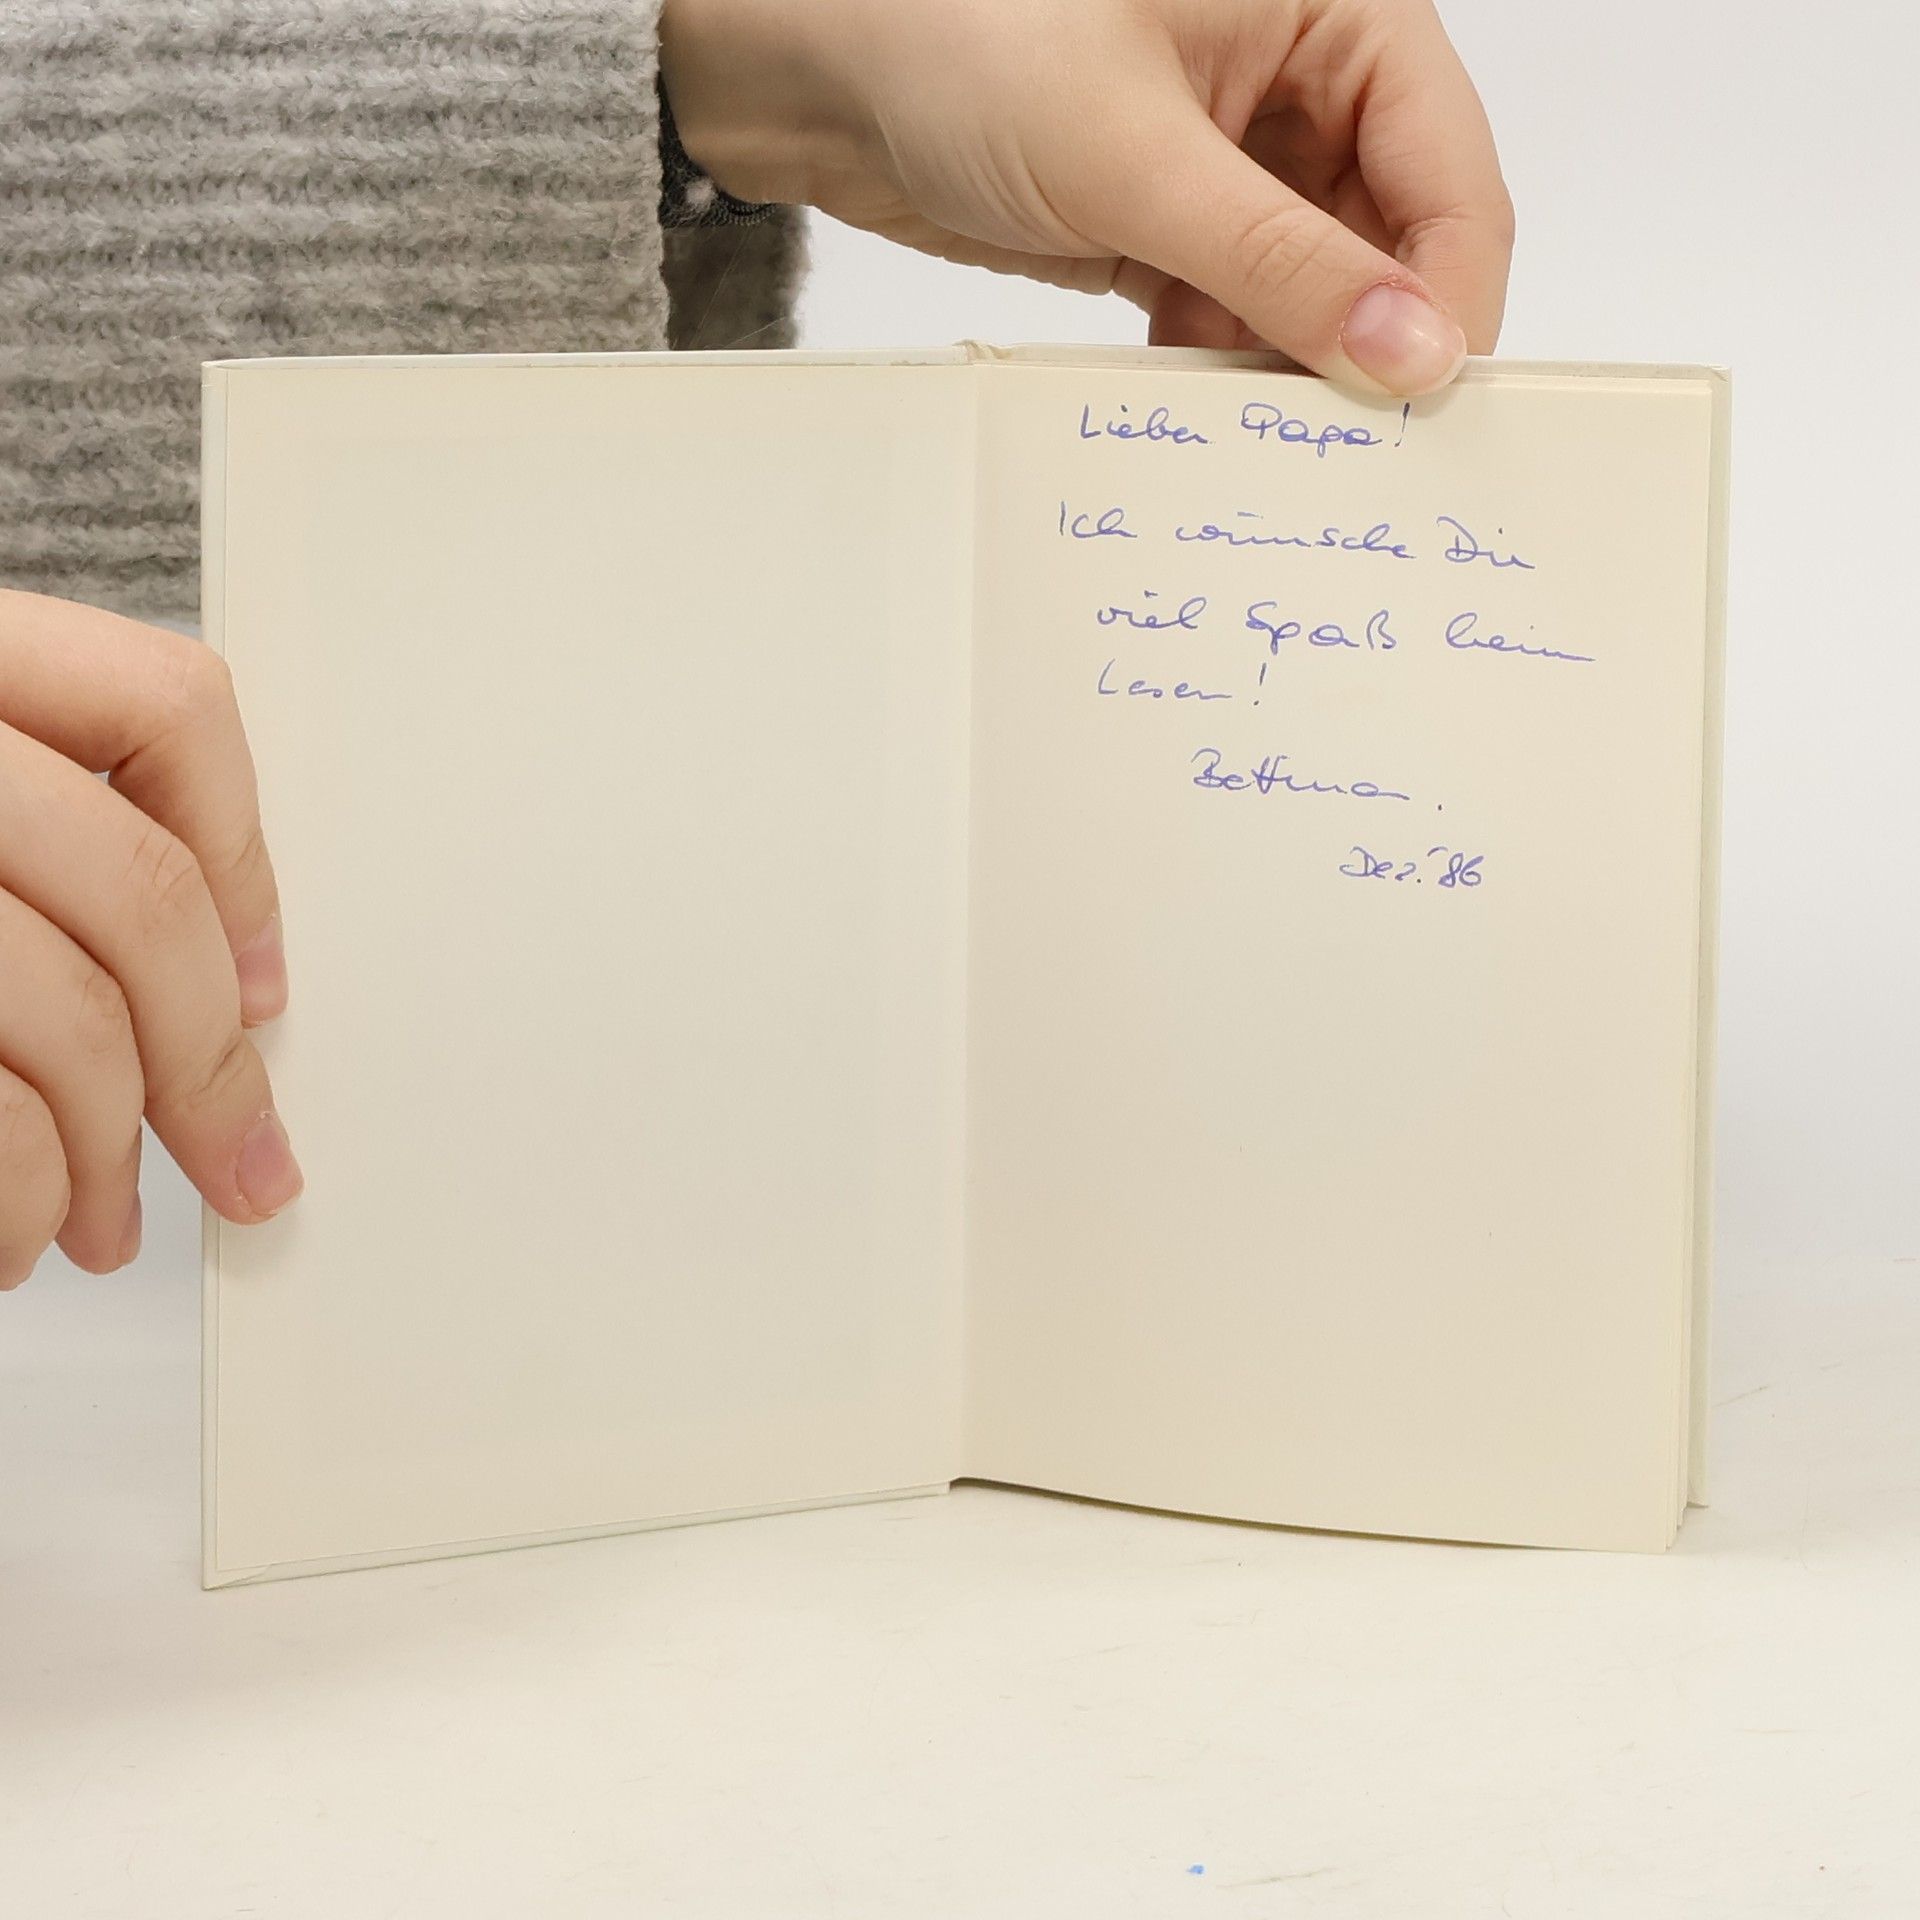 Lieber Papa!
Ich wünsche Dir
viel Spaß beim
Lesen!
Bettina.
Dez. '86